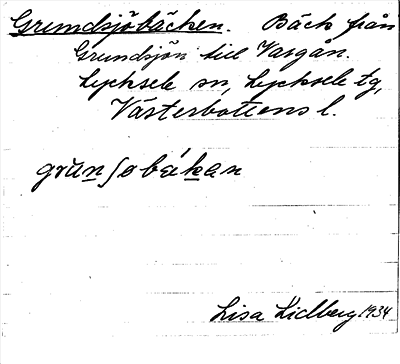 Grundsjöbäcken. Bäck från
Grundsjön till Vargån.
Lycksele sn, Lycksele tg,
Västerbottens l.
grŭnʃəbɛ́kan
Lisa Lidberg 1934